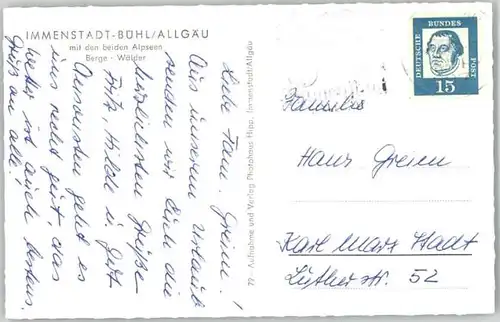 IMMENSTADT-BÜHL/ALLGÄU
mit den beiden Alpseen
Berge - Wälder
Liebe Fam. Greim!
Aus unserem Urlaub
senden wir Euch die
herzlichsten Grüße
Fritz, Hilde u. Gitt
Ansonsten geht es
uns recht gut, das
Wetter ist auch bestens.
Gruß an alle!
79 Aufnahme und Verlag Photohaus Hipp, Immenstadt/Allgäu
DEUTSCHE
BUNDES
POST
15
Familie
Hans Greim
Karl Marx Stadt
Lutherstr. 52